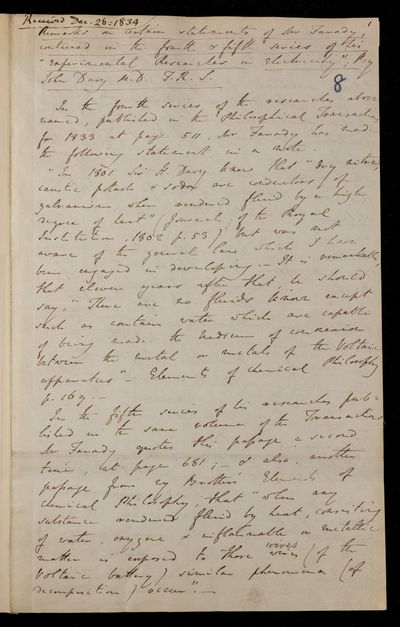 Received Dec. 26. 1834
1
Remarks on certain statements of Mr Faraday,
contained in the fourth & fifth series of his
"Experimental Researches in Electricity"; By
John Davy M.D. F.R.S.
8
In the fourth series of the researches above
named, published in the Philosophical Transactions
for 1833 at page 511. Mr Faraday has made
the following statement in a note.
"In 1801 Sir H. Davy knew that "Dry nitre,
caustic potash & soda are conductors of
galvanism when rendered fluid by a high
degree of heat" (Journals of the Royal
Institution, 1802 p. 53) but was not
aware of the general law which I have
been engaged in developing. – It is remarkable
that eleven years after that, he should
say, "There are no fluids known except
such as contain water which are capable
of being made the medium of connexion
between the metal or metals of the Voltaic
apparatus" – Elements of chemical Philosophy
p. 169. –
In the fifth series of his researches pub-
lished in the same volume of the Transactions
Mr Faraday quotes this passage a second
time, at page 681; – & also, another
passage from my Brother's Elements of
chemical Philosophy, that "when any
substance rendered fluid by heat, consisting
of water, oxygene & inflammable or metallic
matter is exposed to those wires (of the
wires
Voltaic battery) similar phenomena (of
decomposition) occur". –